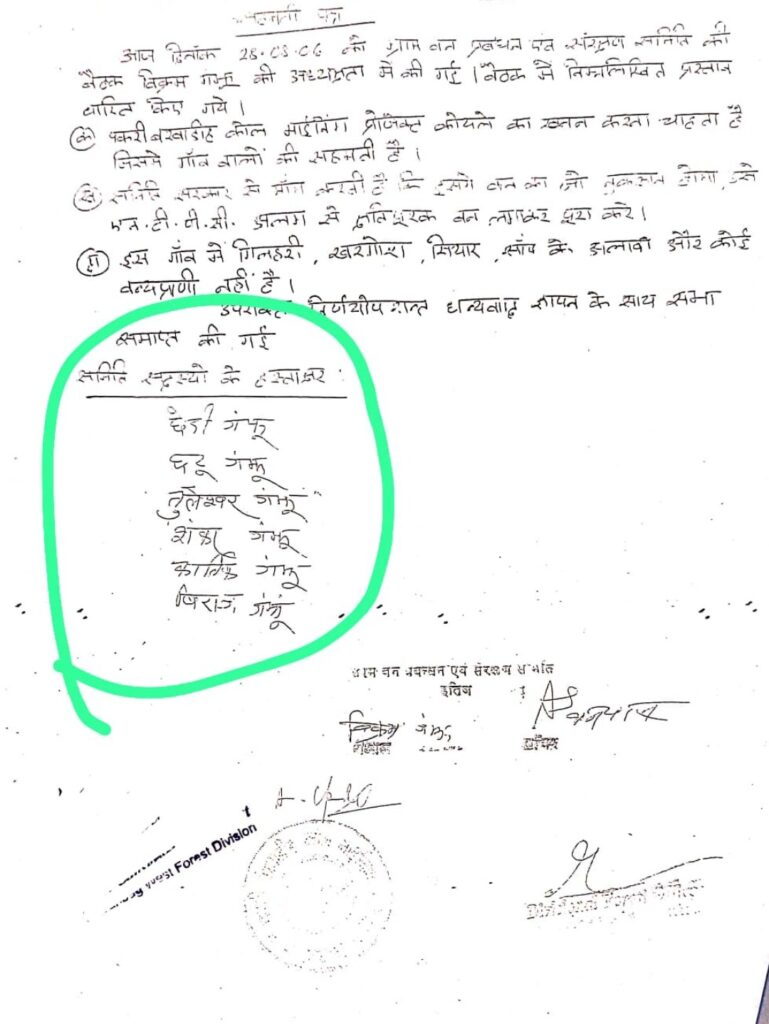 सहमती पत्र
आज दिनांक 28.03.06 को ग्राम वन प्रबंधन एवं संरक्षण समिति की
बैठक विक्रम गंझू की अध्यक्षता में की गई । बैठक में निम्नलिखित प्रस्ताव
पारित किए गये ।
(क) पकरी बरवाडीह कोल माइनिंग प्रोजेक्ट कोयले का खनन करना चाहता है
जिसपे गाँव वालों की सहमती है ।
(ख) समिति सरकार से माँग करती है कि इससे वन का जो नुकसान होगा, उसे
एन.टी.पी.सी. अलग से क्षतिपूरक वन लगाकर पूरा करे ।
(ग) इस गाँव में गिलहरी, खरगोश, सियार, साँप के अलावा और कोई
वन्यप्राणी नहीं है ।
उपरोक्त निर्णयोपरान्त धन्यवाद ज्ञापन के साथ सभा
समाप्त की गई
समिति सदस्यो के हस्ताक्षर :
छेदी गंझू
छटू गंझू
तुलेश्वर गंझू
शंकर गंझू
कार्तिक गंझू
गंझू
ग्राम वन प्रबन्धन एवं संरक्षण समिति
विक्रम गंझू
West Forest Division
Divisional Forest Officer